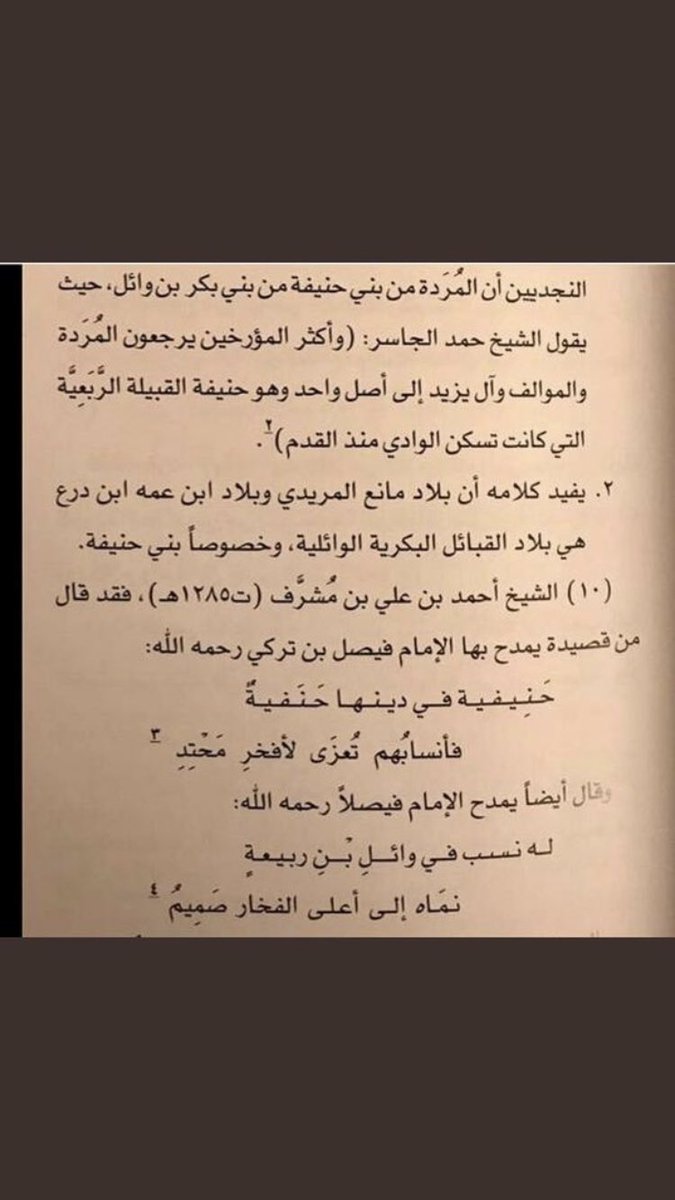 النجديين أن المُرَدة من بني حنيفة من بني بكر بن وائل، حيث
يقول الشيخ حمد الجاسر: (وأكثر المؤرخين يرجعون المُرَدة
والموالف وآل يزيد إلى أصل واحد وهو حنيفة القبيلة الرَّبَعِيَّة
التي كانت تسكن الوادي منذ القدم)٢.
٢. يفيد كلامه أن بلاد مانع المريدي وبلاد ابن عمه ابن درع
هي بلاد القبائل البكرية الوائلية، وخصوصاً بني حنيفة.
(١٠) الشيخ أحمد بن علي بن مُشرَّف (ت١٢٨٥هـ)، فقد قال
من قصيدة يمدح بها الإمام فيصل بن تركي رحمه الله:
حَنِيفية في دينها حَنَفيةٌ
فأنسابُهم تُعزَى لأفخرِ مَحْتِدِ ٣
وقال أيضاً يمدح الإمام فيصلاً رحمه الله:
له نسب في وائلِ بْنِ ربيعةٍ
نمَاه إلى أعلى الفخار صَمِيمُ ٤